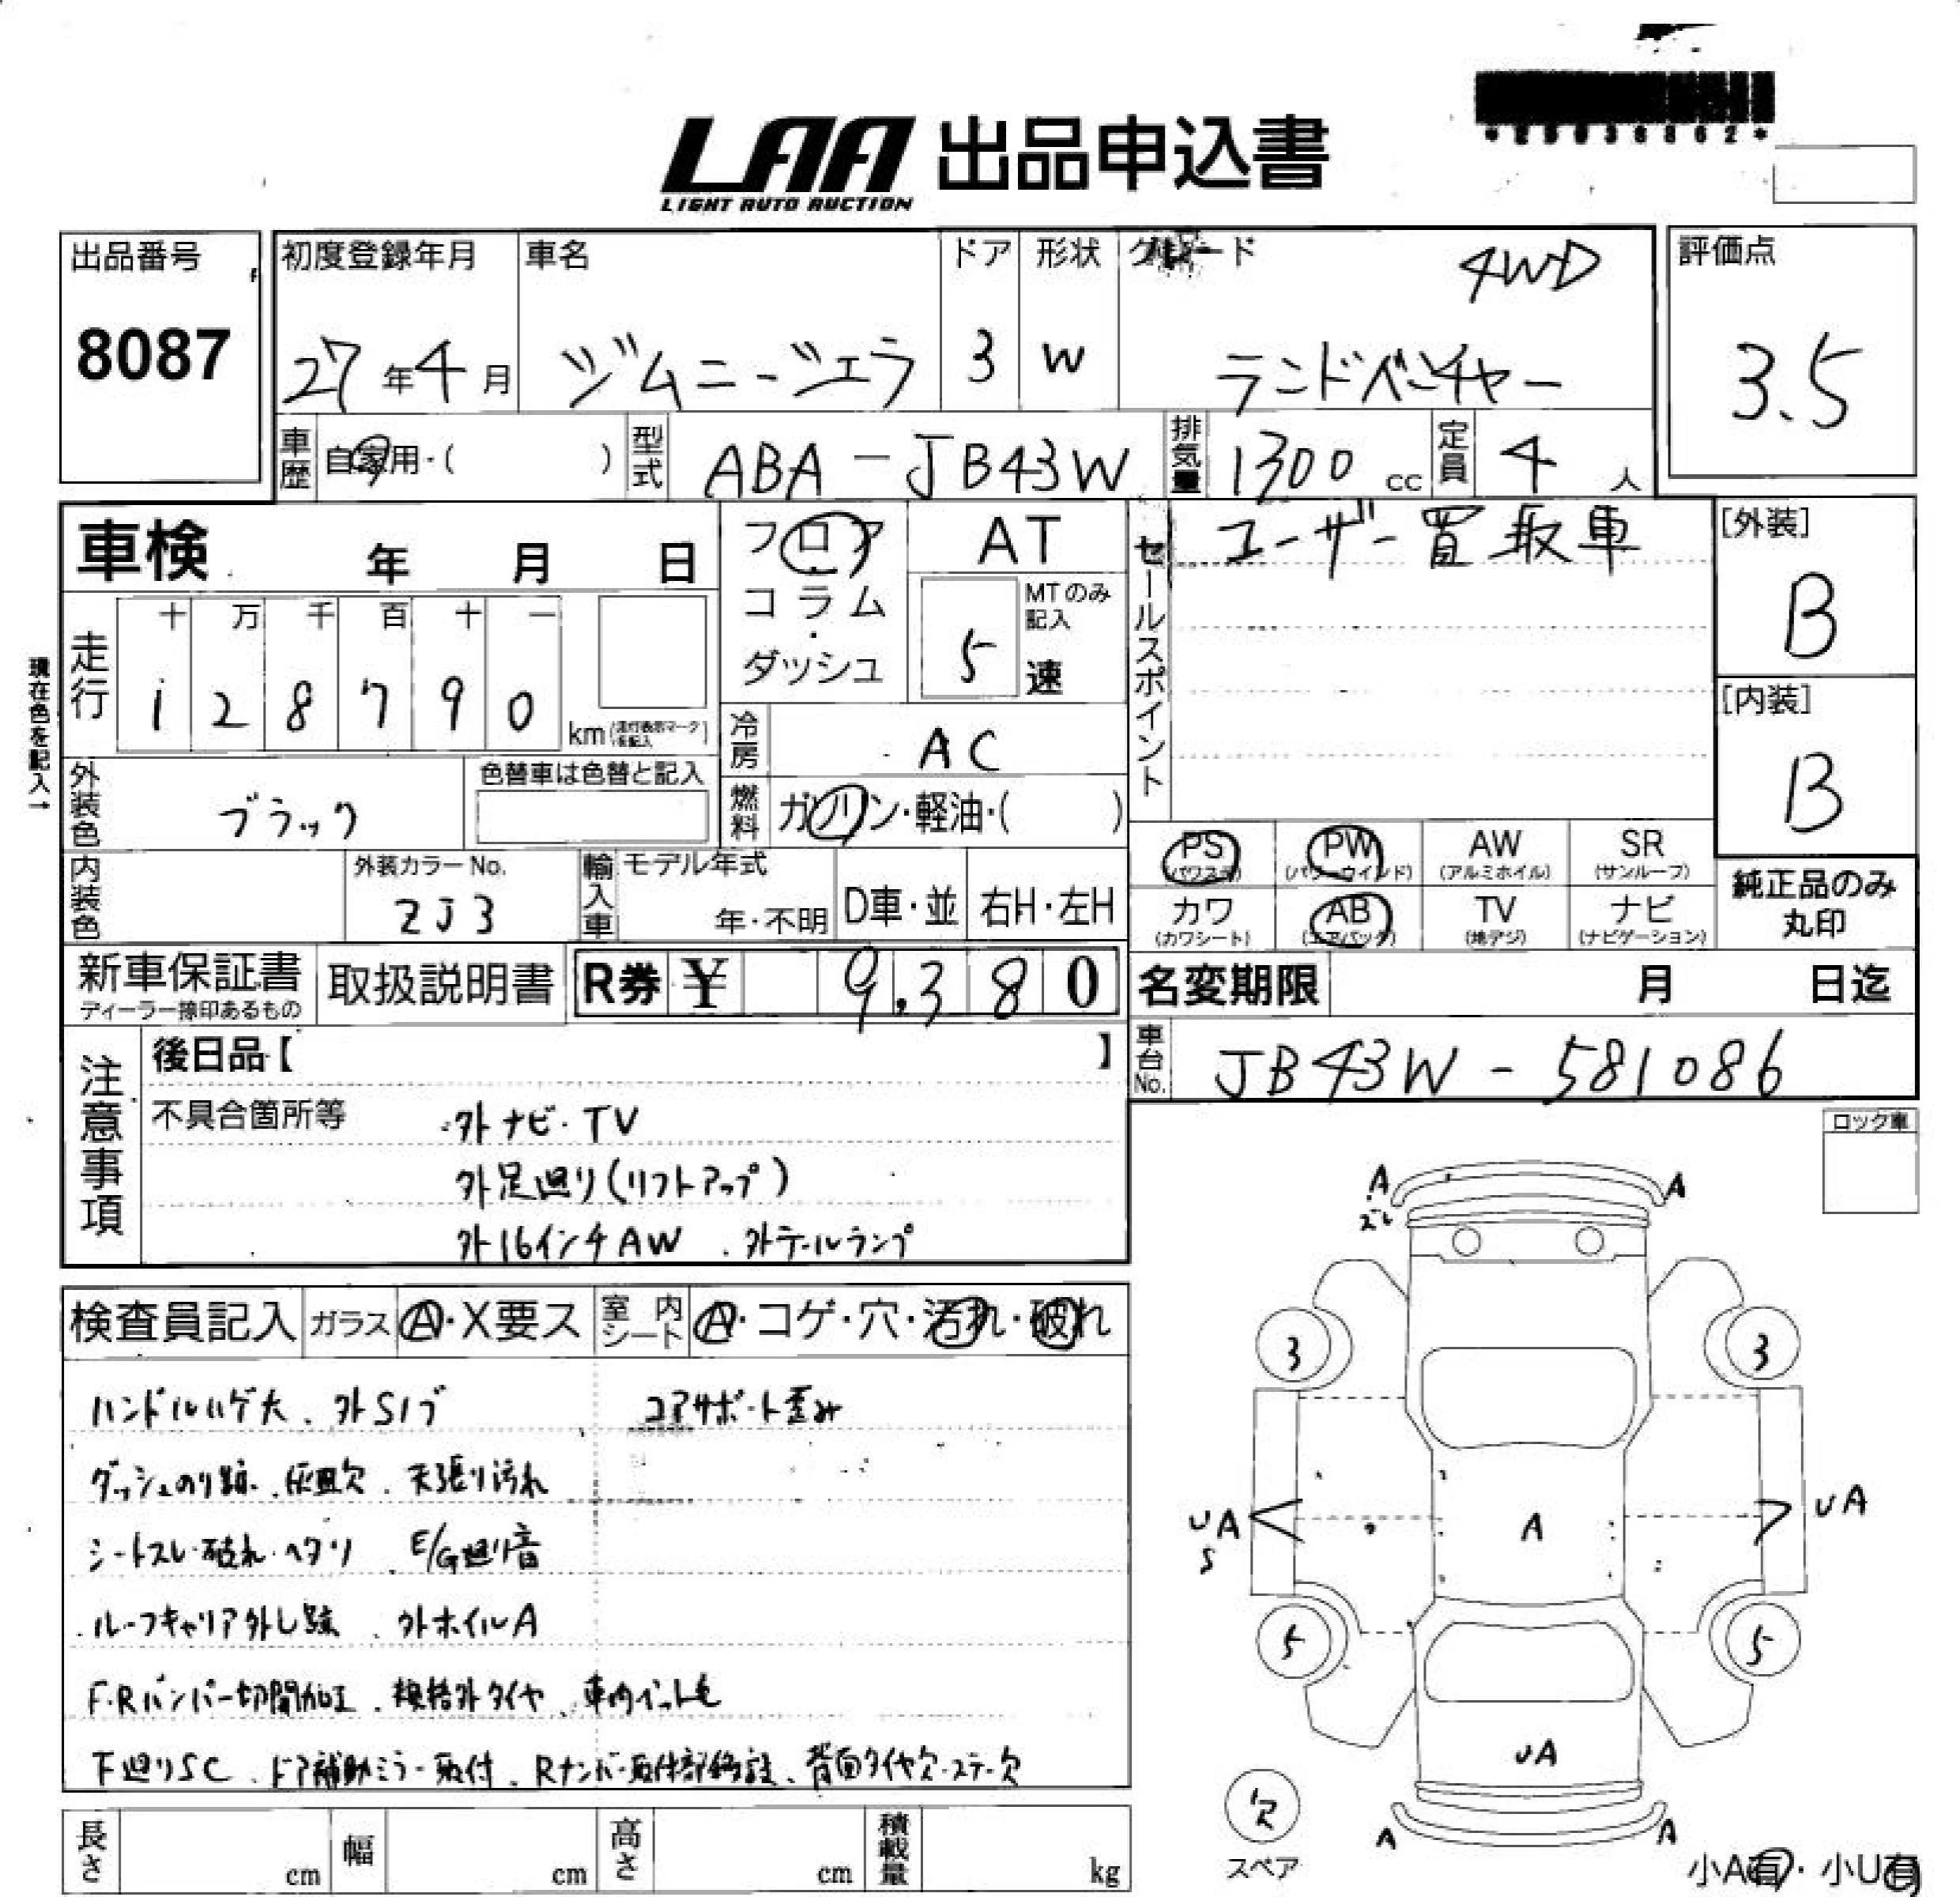 LAA 出品申込書
LIGHT AUTO AUCTION
出品番号
8087
初度登録年月
27年4月
車名
ジムニーシエラ
ドア
3
形状
W
グレード
4WD
ランドベンチャー
評価点
3.5
車歴
自家用・( )
型式
ABA-JB43W
排気量
1300 cc
定員
4 人
車検 年 月 日
フロア
コラム
・
ダッシュ
AT
MTのみ記入
5 速
セールスポイント
ユーザー買取車
[外装]
B
[内装]
B
現在色を記入→
走行
十 万 千 百 十 一
1 2 8 7 9 0
km
冷房
AC
外装色
ブラック
色替車は色替と記入
燃料
ガソリン・軽油・( )
内装色
外装カラーNo.
ZJ3
輸入車
モデル年式
年・不明
D車・並
右H・左H
PS
(パワステ)
PW
(パワーウインド)
AW
(アルミホイル)
SR
(サンルーフ)
カワ
(カワシート)
AB
(エアバック)
TV
(地デジ)
ナビ
(ナビゲーション)
純正品のみ
丸印
新車保証書
ディーラー捺印あるもの
取扱説明書
R券 ¥ 9,380
名変期限 月 日迄
車台No.
JB43W-581086
注意事項
後日品【 】
不具合箇所等
外ナビ・TV
外足廻り(リフトアップ)
外16インチAW . 外テールランプ
ロック車
検査員記入
ガラス
A・X要ス
室内シート
A・コゲ・穴・汚れ・破れ
ハンドルハゲ大、外Sノブ
コアサポート歪み
ダッシュのり跡、灰皿欠、天張り汚れ
シートスレ・破れ・ヘタリ、E/G廻り音
ルーフキャリア外し跡、外ホイルA
F・Rバンパー切開加工、規格外タイヤ、車内ペット毛
下廻りSC、ドア補助ミラー取付、Rナンバー取付部移設、背面タイヤ欠・ステー欠
A
A
ズレ
3
3
UA
S
A
UA
5
5
UA
欠
スペア
A
A
小A有・小U有
長さ cm
幅 cm
高さ cm
積載量 kg